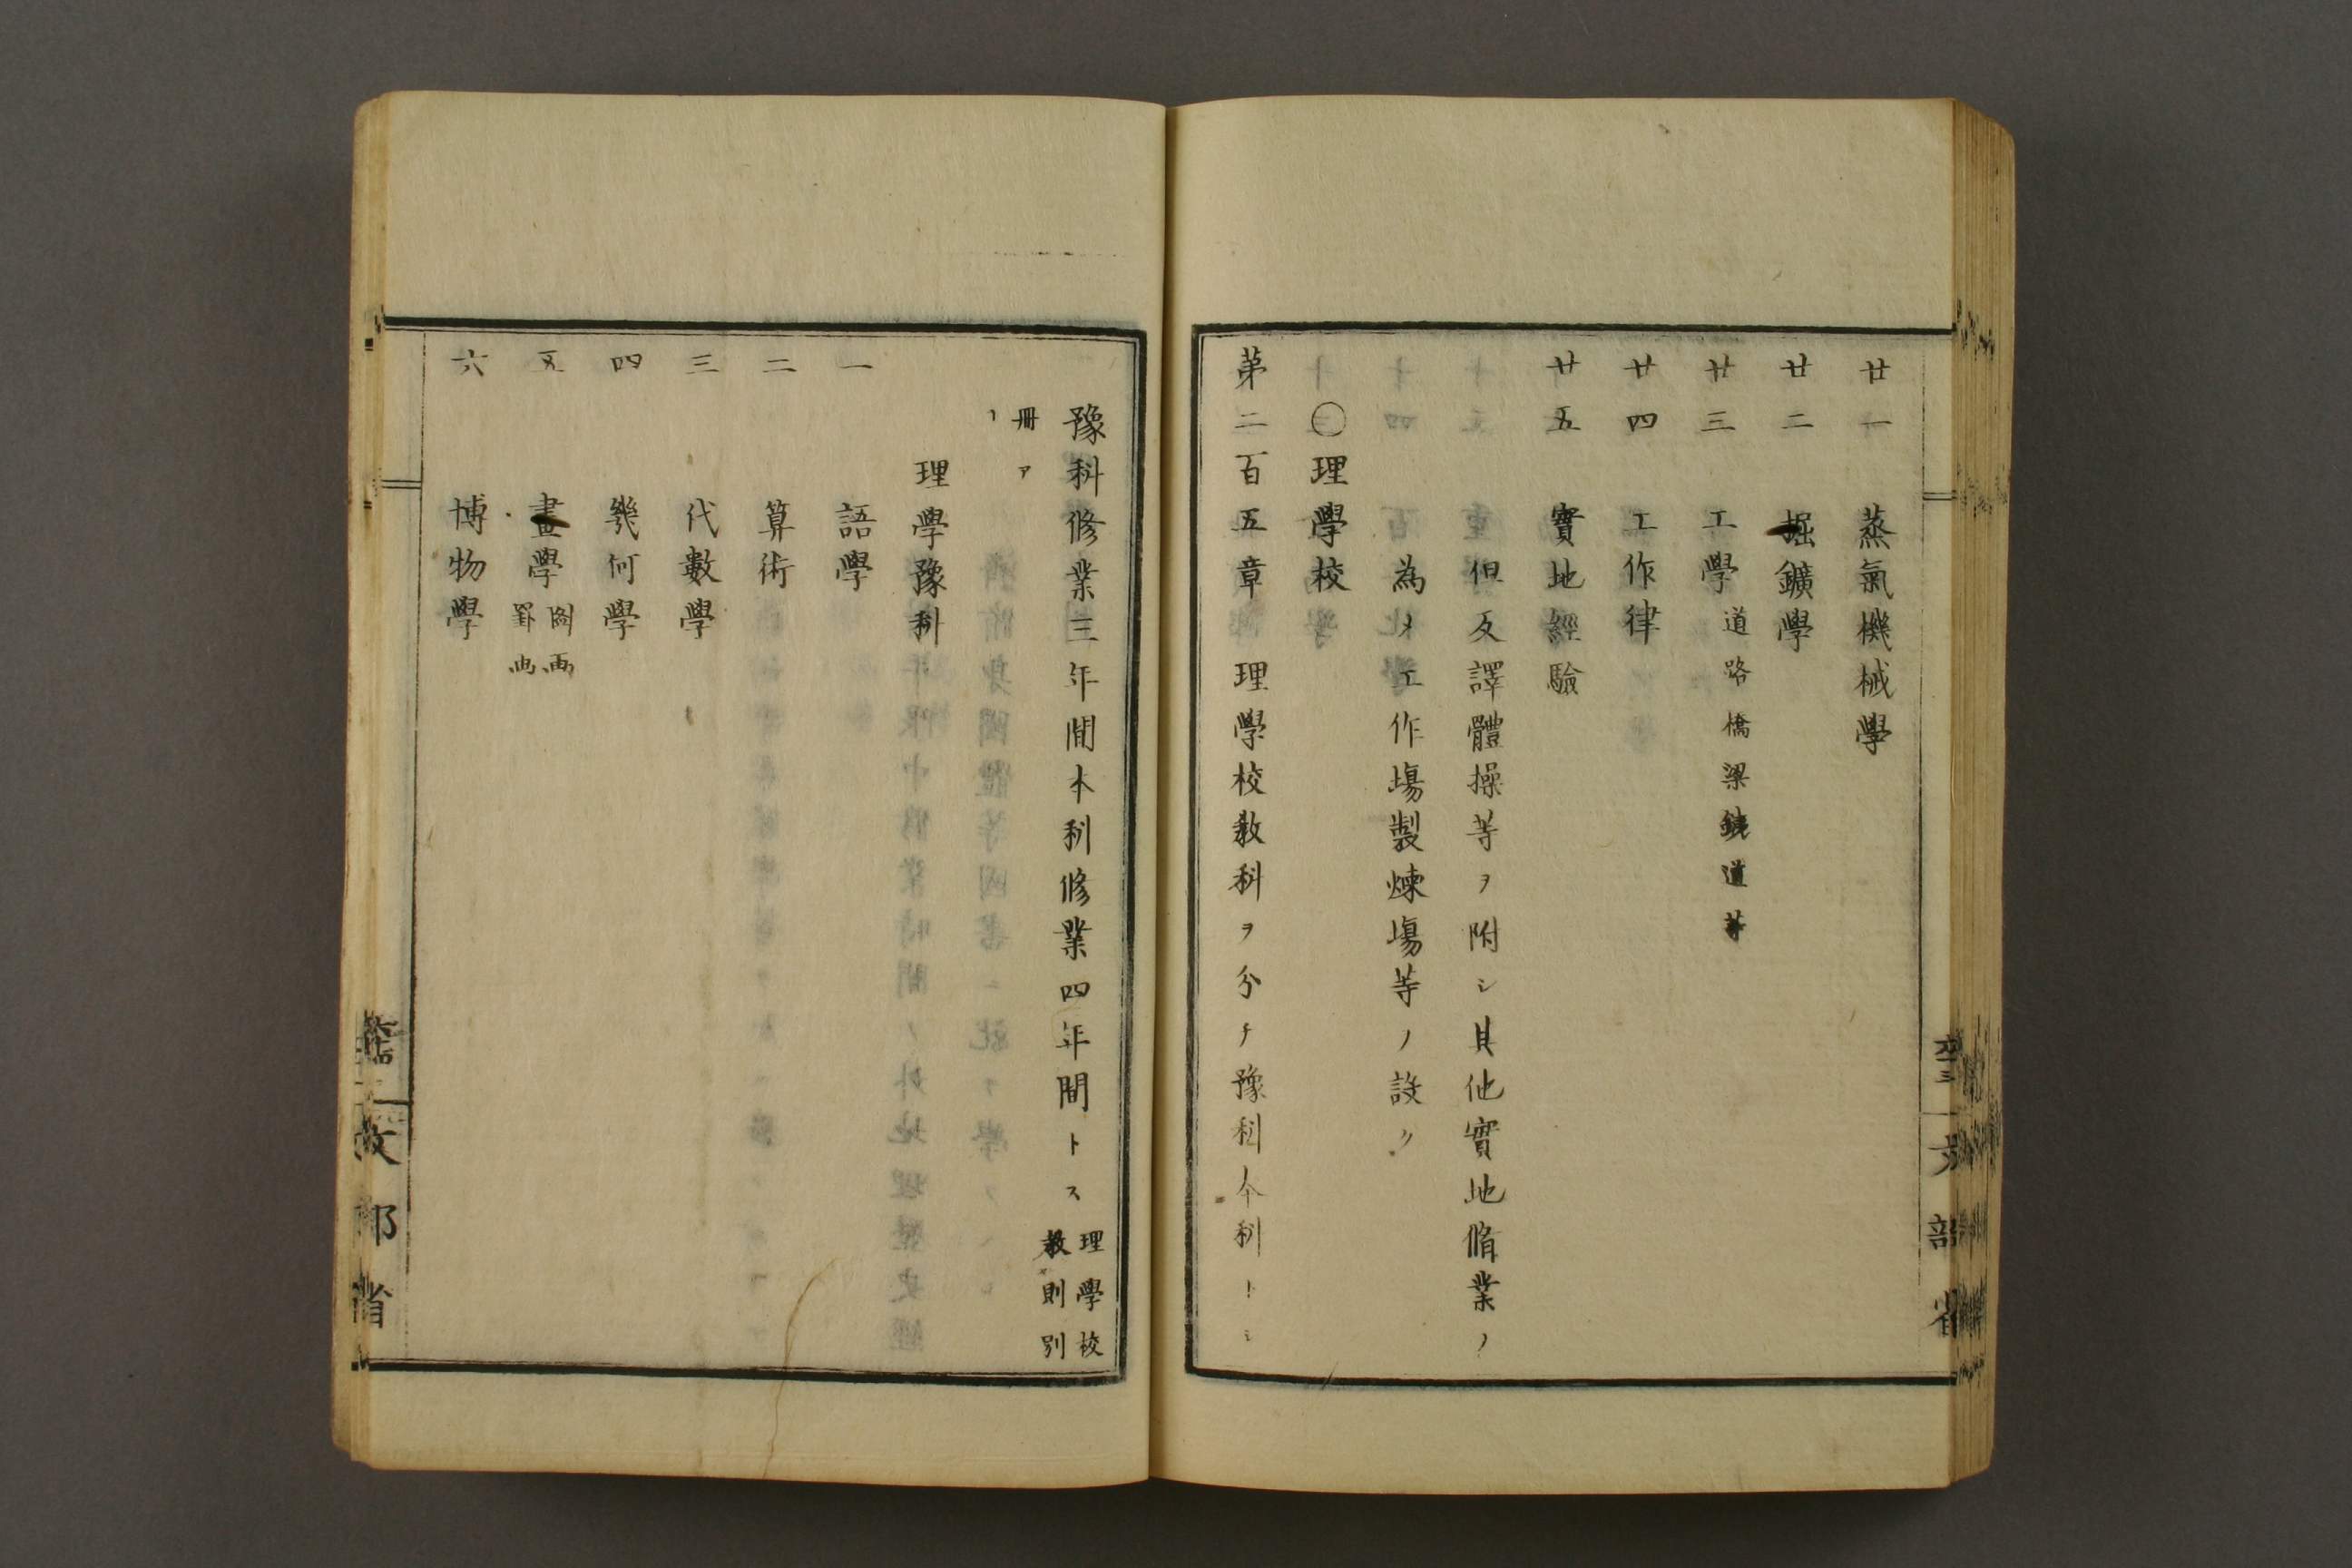 廿一 蒸氣機械學
廿二 掘鑛學
廿三 工學 道路橋梁鐵道等
廿四 工作律
廿五 實地經驗
但反譯體操等ヲ附シ其他實地脩業ノ
為メ工作塲製煉塲等ノ設ク
〇理學校
第二百五章 理學校教科ヲ分チ豫科本科トシ
文部省
豫科修業三年間本科修業四年間トス 理學校
教則別
冊ア
リ
理學豫科
一 語學
二 算術
三 代數學
四 幾何學
五 畫學 圖画
罫画
六 博物學
文部省